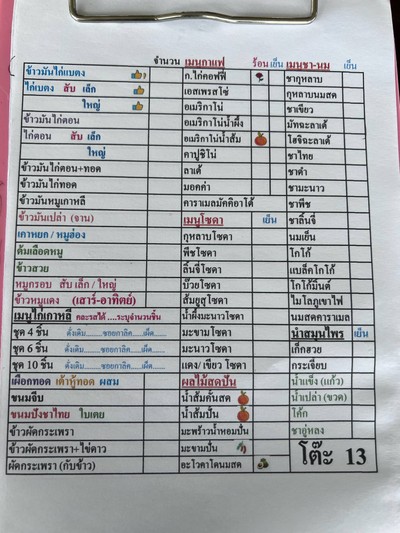 จำนวน เมนูกาแฟ ร้อน เย็น เมนูชา-นม เย็น
ข้าวมันไก่เบตง ก.ไก่คอฟฟี่ ชากุหลาบ
ไก่เบตง สับ เล็ก เอสเพรสโซ่ กุหลาบนมสด
ใหญ่ อเมริกาโน่ ชาเขียว
ข้าวมันไก่ตอน อเมริกาโน่น้ำผึ้ง มัทฉะลาเต้
ไก่ตอน สับ เล็ก อเมริกาโน่น้ำส้ม โฮจิฉะลาเต้
ใหญ่ คาปูชิโน่ ชาไทย
ข้าวมันไก่ตอน+ทอด ลาเต้ ชาดำ
ข้าวมันไก่ทอด มอคค่า ชามะนาว
ข้าวมันหมูเกาหลี คาราเมลมัคคิอาโต้ ชาพีช
ข้าวมันเปล่า (จาน) เมนูโซดา เย็น ชาลิ้นจี่
เกาหยก / หมูฮ่อง กุหลาบโซดา นมเย็น
ต้มเลือดหมู พีชโซดา โกโก้
ข้าวสวย ลิ้นจี่โซดา แบล็คโกโก้
หมูกรอบ สับ เล็ก / ใหญ่ บ๊วยโซดา โกโก้มิ้นต์
ข้าวหมูแดง (เสาร์-อาทิตย์) ส้มยูสุโซดา ไมโลภูเขาไฟ
เมนูไก่เกาหลี คละรสได้ ....ระบุจำนวนชิ้น น้ำผึ้งมะนาวโซดา นมสดคาราเมล
ชุด 4 ชิ้น ดั่งเดิม........ซอยกาลิค.....เผ็ด..... มะขามโซดา น้ำสมุนไพร เย็น
ชุด 6 ชิ้น ดั่งเดิม........ซอยกาลิค.....เผ็ด..... มะนาวโซดา เก๊กฮวย
ชุด 10 ชิ้น ดั่งเดิม........ซอยกาลิค.....เผ็ด..... แดง/ เขียว โซดา กระเจี๊ยบ
เผือกทอด เต้าหู้ทอด ผสม ผลไม้สดปั่น น้ำแข็ง (แก้ว)
ขนมจีบ น้ำส้มคั้นสด น้ำเปล่า (ขวด)
ขนมปังชาไทย ใบเตย น้ำส้มปั่น โค้ก
ข้าวผัดกระเพรา มะพร้าวน้ำหอมปั่น ชาอู่หลง
ข้าวผัดกระเพรา+ไข่ดาว มะขามปั่น โต๊ะ 13
ผัดกระเพรา (กับข้าว) อะโวคาโดนมสด